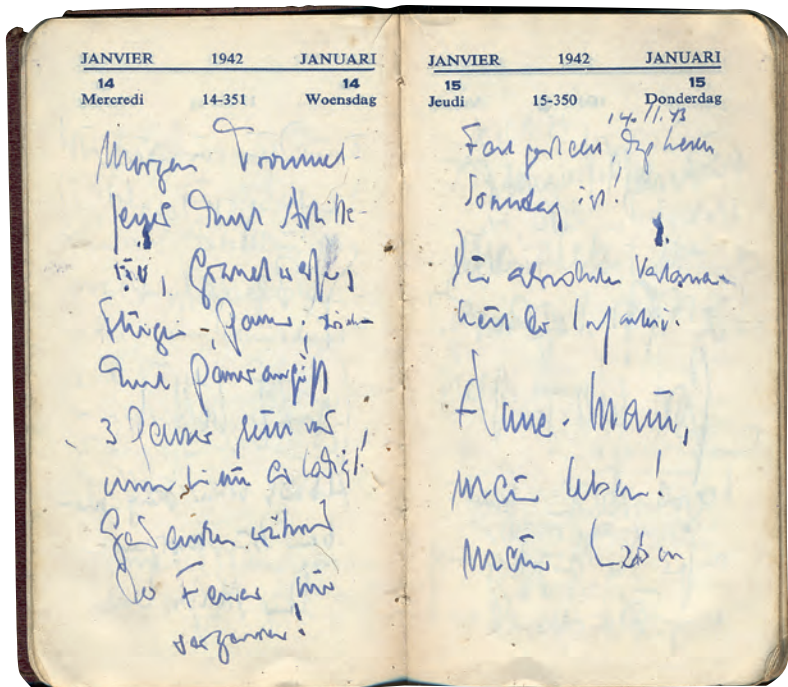 JANVIER 1942 JANUARI
14 14
Mercredi 14-351 Woensdag
Morgen Trommel-
feuer durch Artille-
rie, Granatwerfer,
Flieger-, Panzer,
durch Panzerangriff
3 Panzer
erledigt!
Gedanken während
des Feuers
JANVIER 1942 JANUARI
15 15
Jeudi 15-350 Donderdag
14.11.43
Fast vergessen, daß heute
Sonntag ist!
Die absolute Verlassen-
heit der Infanterie.
Anne-Marie,
mein Leben!
mein Leben